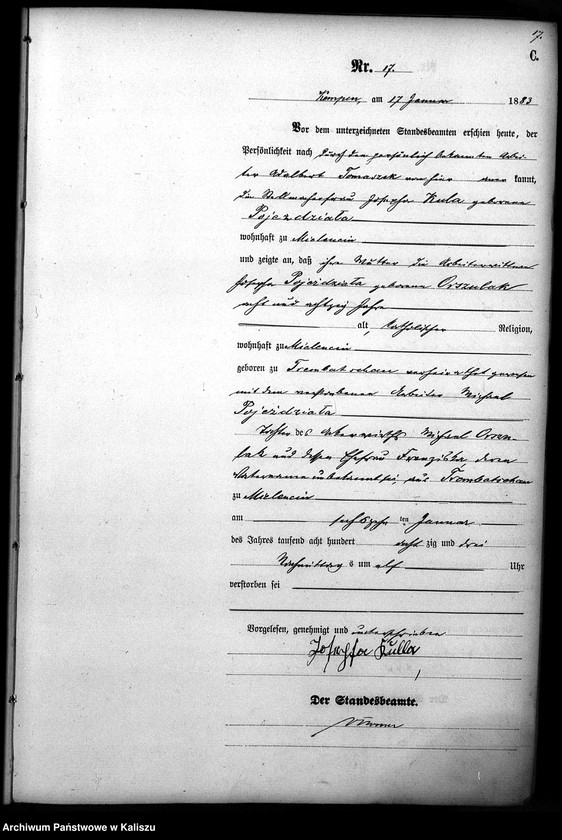 17.
C.
Nr. 17.
Kempen, am 17 Januar 1883
Vor dem unterzeichneten Standesbeamten erschien heute, der
Persönlichkeit nach durch den persönlich bekannten Arbei-
ter Adalbert Tomaszek von hier kannt,
die Stellmacherfrau Josepha Kula geborene
Pojezdziała
wohnhaft zu Mielencin
und zeigte an, daß ihre Mutter die Arbeiterwittwe
Josepha Pojeżdziała geborene Orszulak
acht und achtzig Jahre
alt, katholischer Religion,
wohnhaft zu Mielencin
geboren zu Trembatschau verheirathet gewesen
mit dem verstorbenen Arbeiter Michael
Pojeżdziała
Tochter des Ackerwirths Michael Orszu-
lak und dessen Ehefrau Franziska deren
Vatername unbekannt sei, aus Trembatschau
zu Mielencin
am sechszehn ten Januar
des Jahres tausend acht hundert acht zig und drei
Nachmittag s um elf Uhr
verstorben sei
Vorgelesen, genehmigt und unterschrieben
Josepha Kulla
Der Standesbeamte.
Archiwum Państwowe w Kaliszu